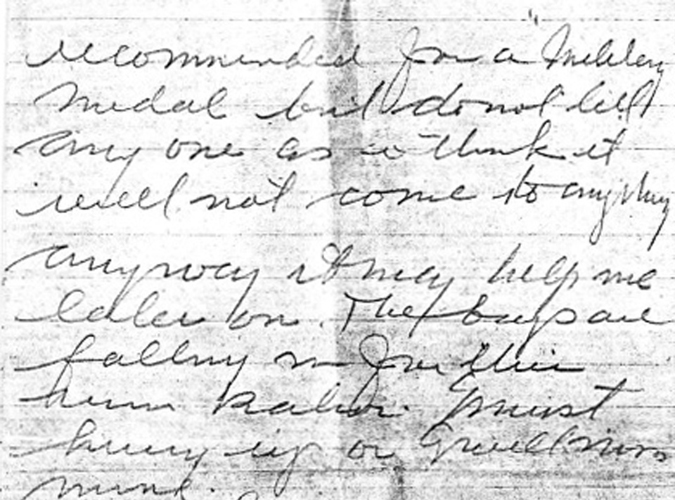 recommended for a Military
Medal but do not tell
any one as i think it
will not come to anything
anyway it may help me
later on. The boys are
falling in for their
rum I must
hurry up or I will miss
mine.